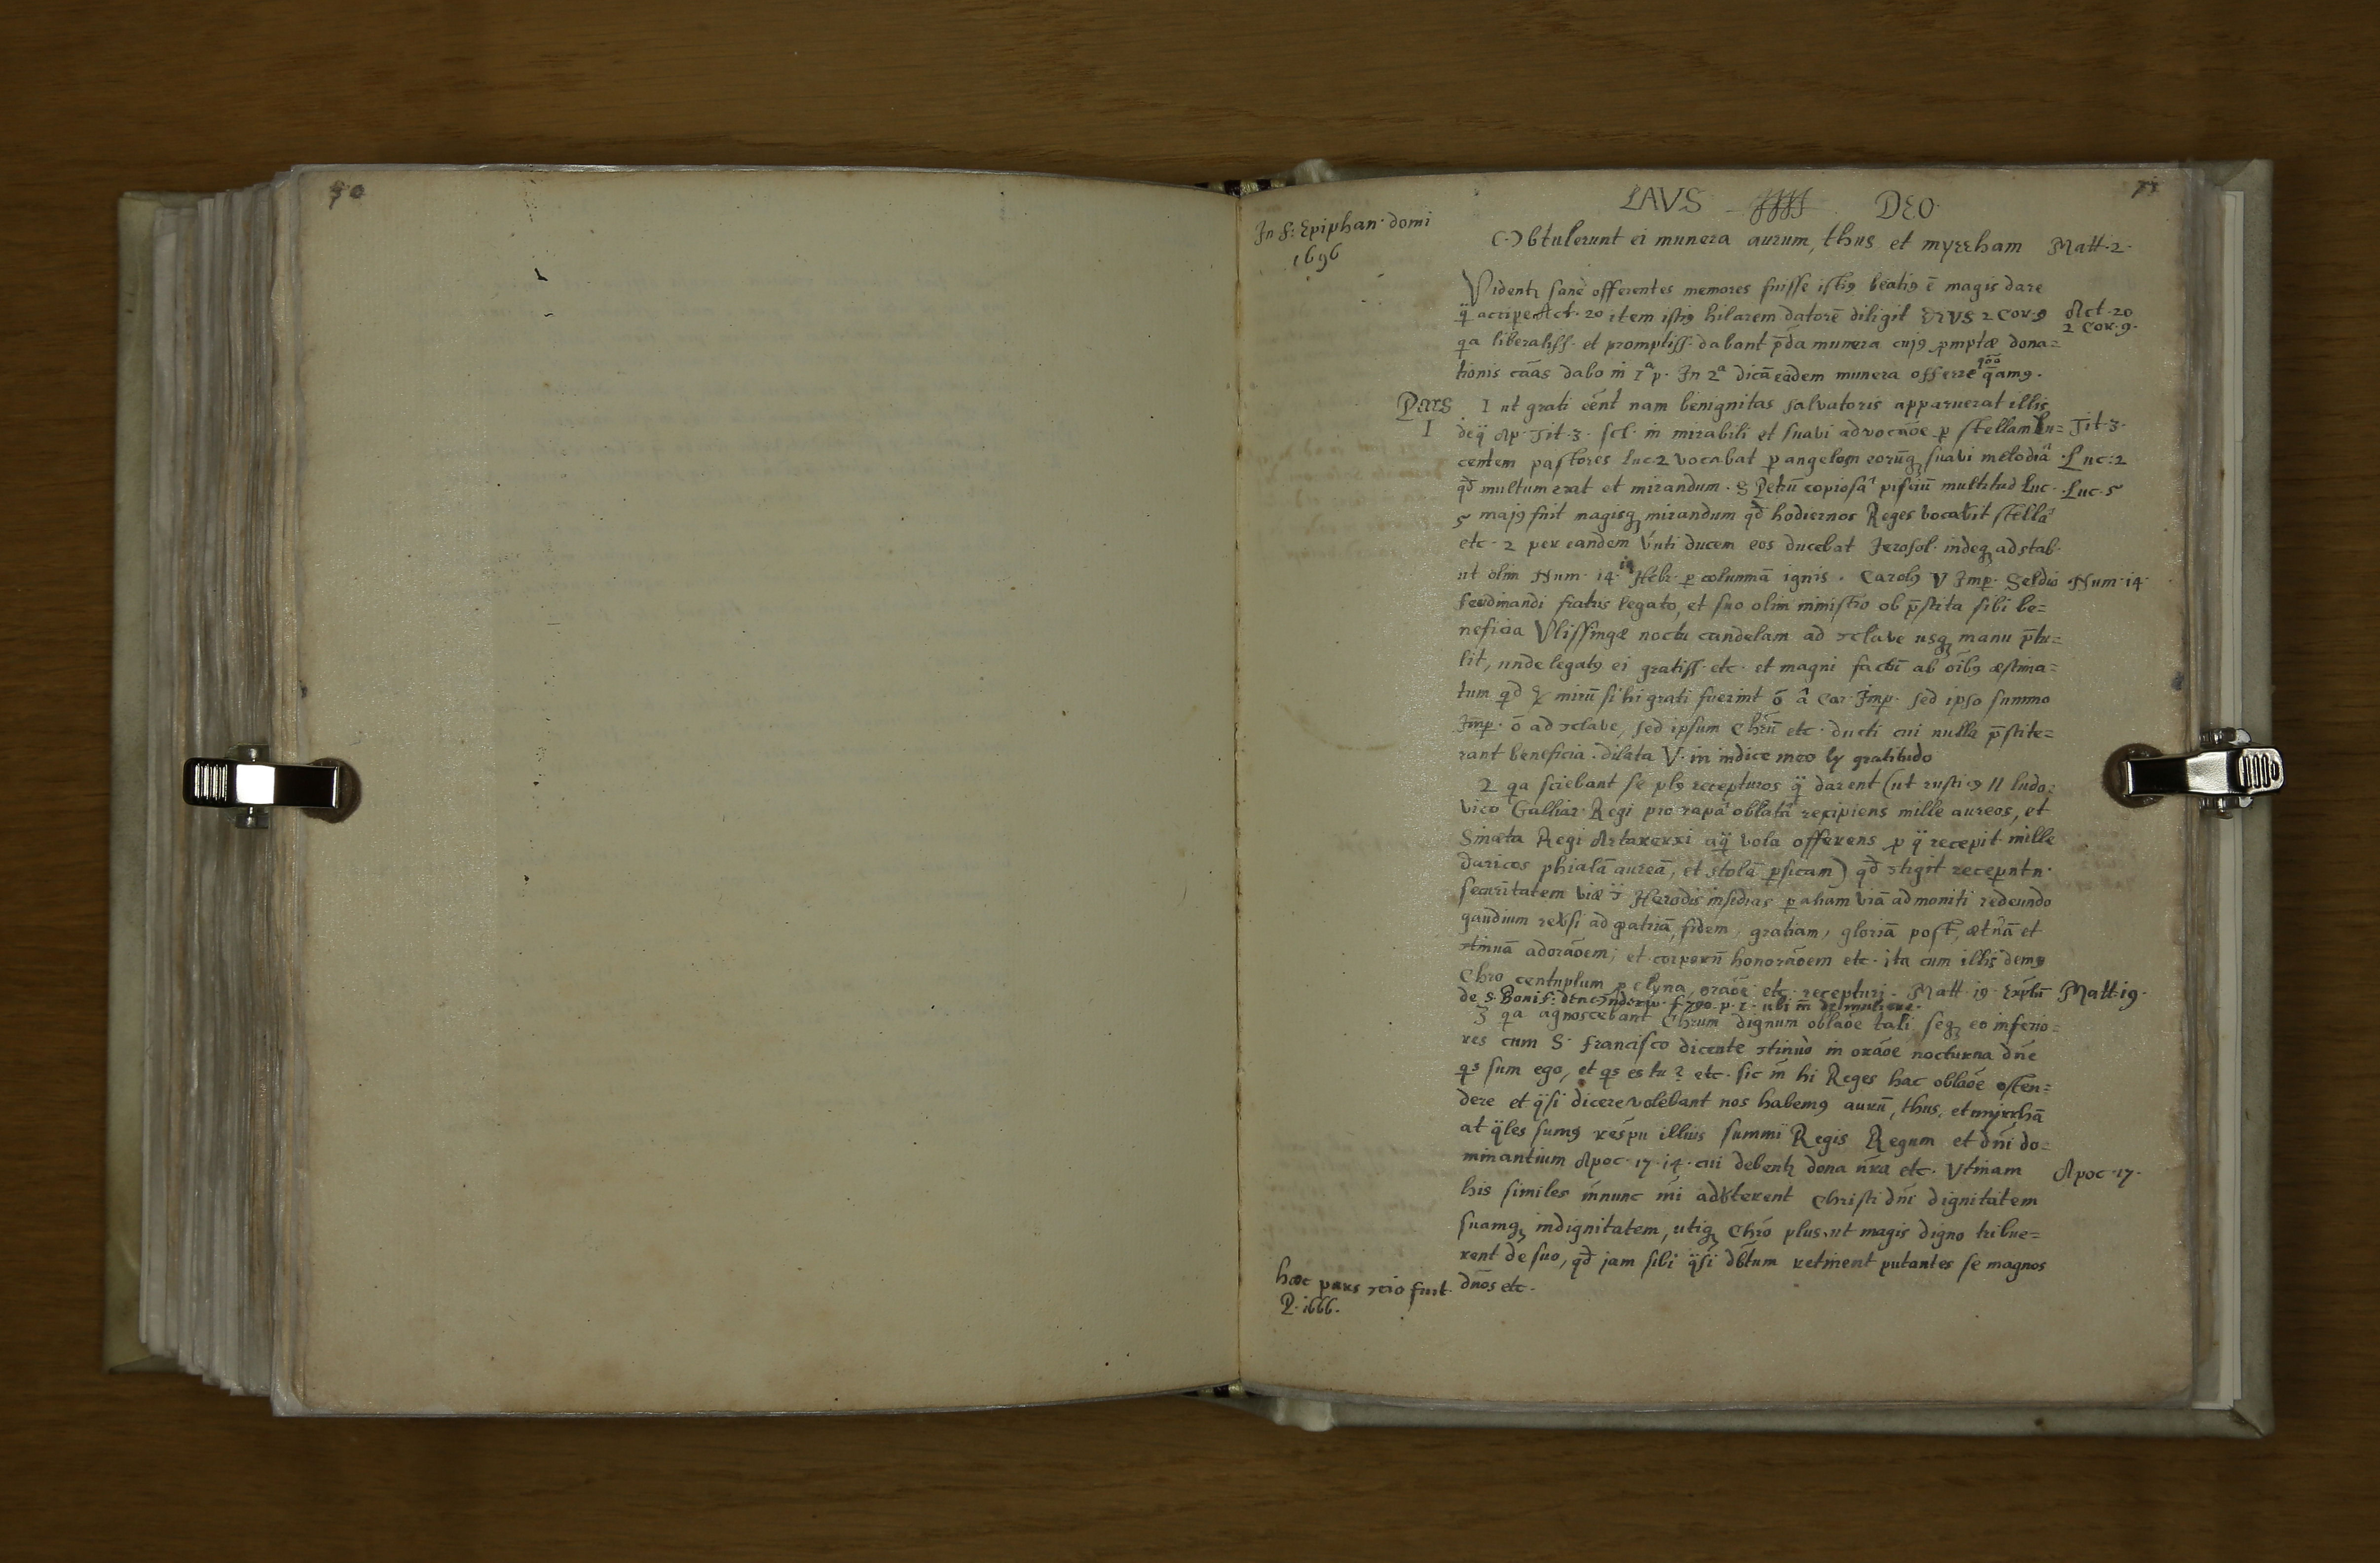 70
71
LAVS DEO
In f: Epiphan. domi
1696
Obtulerunt ei munera aurum, thus et myrrham Matt. 2.
Videntr sane offerentes memores fuisse istiꝯ beatiꝯ ē magis dare
q̈ accipe Act. 20 item istiꝯ hilarem datorē diligit DEVS 2 Cor. 9
Act. 20
2 Cor. 9.
qa liberaliss. et promptiss. dabant p̄da munera cujꝯ promptæ dona=
tionis cāas dabo in 1ª p. In 2ª dicā eadem munera offerre
Pars
I
1 ut grati eēnt nam benignitas salvatoris apparuerat illis
deq̈ Ap. Tit. 3. scl. in mirabili et suavi advocāōe p stellam lu= Tit. 3.
centem pastores Luc. 2 vocabat p angelom eorūq; suavi melodiâ Luc: 2
qd̄ multum erat et mirandum. S Petrū copiosâ pisciū multitud Luc. Luc. 5
5 majꝯ fuit magisq; mirandum qd̄ hodiernos Reges vocabit stellâ
etc. 2 per eandem vūti ducem eos ducebat Jerosol. indeq; ad stab.
ut olim Num. 14. Hebr. p columnā ignis. Carolꝯ V Imp. Seldio Num. 14
ferdinandi fratris legato, et suo olim ministro ob p̄stita sibi be=
neficia Vlissingæ noctu candelam ad ɔclave usq; manu p̄tu=
lit, unde legatꝯ ei gratiss. etc. et magni factū ab oībꝯ æstima=
tum qd mirū si hi grati fuerint ō â Car. Imp. sed ipso summo
Imp. ō ad ɔclave, sed ipsum Chrū etc. ducti cui nulla p̄stite=
rant beneficia. dilata V. in indice meo ly gratitudo
2 qa sciebant se plꝯ recepturos q̈ darent (ut rusticꝯ 11 ludo=
vico Galliar. Regi pro rapâ oblatâ recipiens mille aureos, et
Sinæta Regi Artaxerxi aq̈ vola offerens p q̈ recepit mille
daricos phialā aureā, et stolā psicam) qd̄ ɔtigit receperntn.
securitatem viæ Herodis insidias p aliam viā admoniti redeundo
gaudium revsi ad patriā, fidem, gratiam, gloriā post, ætnā et
ɔtinuā adorāōem, et corporū honorāōem etc. ita cum illis demꝯ
Chro centuplum p elyna, orāōe etc. recepturi. Matt. 19. Explū Matt. 19.
de S. Bonif:
3 qa agnoscebant Chrum dignum oblāōe tali, seq; eo inferio=
res cum S. francisco dicente ɔtinuò in orāōe nocturna dne
qs sum ego, et qs es tu? etc. sic īn hi Reges hac oblāōe osten=
dere et q̈si dicere volebant nos habemꝯ aurū, thus, et myrrhā
at q̈les sumꝯ respu illius summi Regis Regum et dn̄i do=
minantium Apoc. 17. 14. cui debentr dona nr̄a etc. Vtinam Apoc. 17.
his similes īnnunc m̄i advterent Christi dn̄i dignitatem
suamq; indignitatem, utiq; Chrō plus ut magis digno tribue=
rent de suo, qd̄ jam sibi q̈si dbtum retinent putantes se magnos
dnos etc.
hæc pars ɔcio fuit
P. 1666.